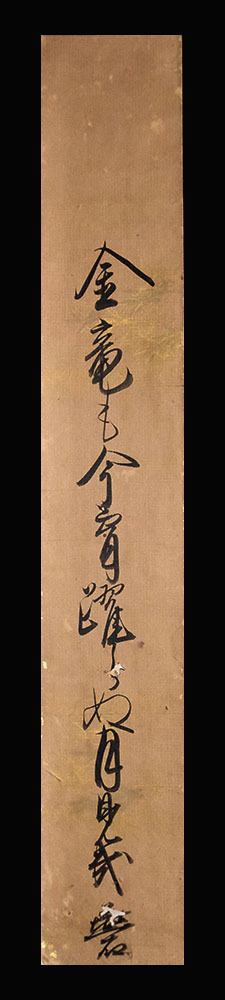 金竜も今宵躍らぬ月見哉